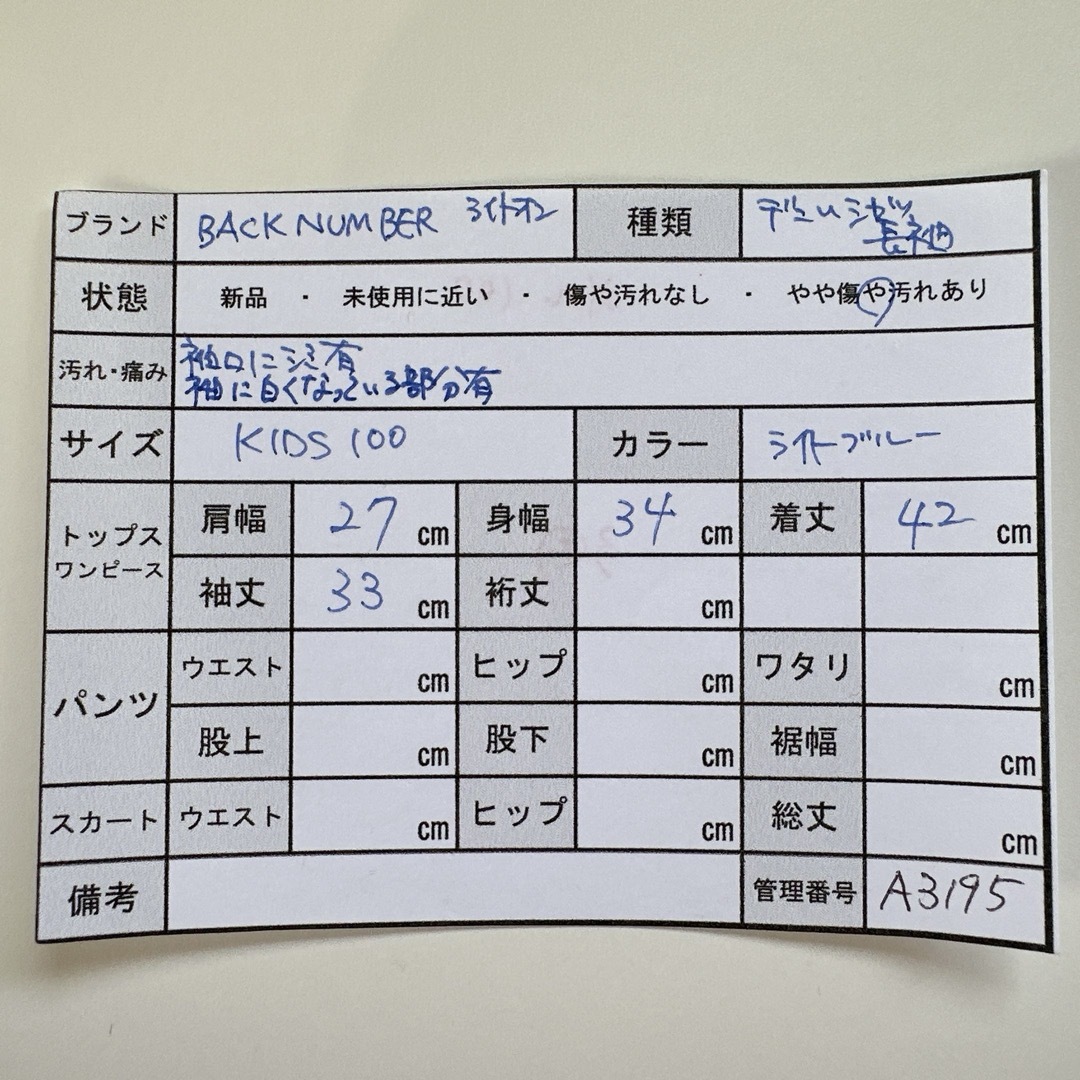 ブランド BACK NUMBER ライトオン 種類 デニムシャツ
長袖
状態 新品 ・ 未使用に近い ・ 傷や汚れなし ・ やや傷や汚れあり
汚れ・痛み 袖口にシミ有
袖に白くなっている部分有
サイズ KIDS 100 カラー ライトブルー
トップス
ワンピース
肩幅 27 cm 身幅 34 cm 着丈 42 cm
袖丈 33 cm 裄丈 cm
パンツ
ウエスト cm ヒップ cm ワタリ cm
股上 cm 股下 cm 裾幅 cm
スカート ウエスト cm ヒップ cm 総丈 cm
備考 管理番号 A3195